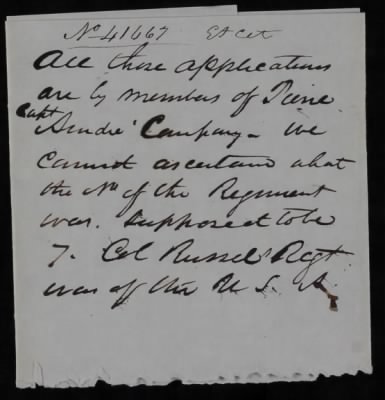 No 41667 Et Cet
All these applications
are by members of
Capt
Company - We
cannot ascertain what
the No of the Regiment
was. Suppose it to be
7. Col Russel Regt
was of the U. S. A.